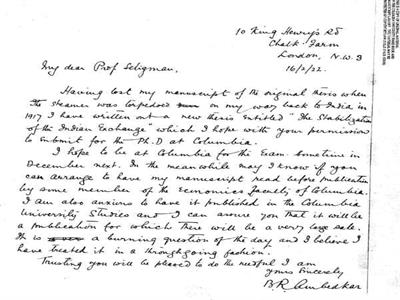 10 King Henry's Rd
Chalk Farm
London, N.W.3
16/2/22.
My dear Prof Seligman,
Having lost my manuscript of the original thesis when
the steamer was torpedoed on my way back to India in
1917 I have written out a new thesis entitled "The Stabilization
of the Indian Exchange" which I hope with your permission
to submit for the Ph.D at Columbia.
I hope to be at Columbia for the Exam sometime in
December next. In the meanwhile may I know if you
can arrange to have my manuscript read before publication
by some member of the Economics Faculty of Columbia.
I am also anxious to have it published in the Columbia
University Studies and I can assure you that it will be
a publication for which there will be a very large sale.
It is a burning question of the day and I believe I
have treated it in a throughgoing fashion.
Trusting you will be pleased to do the needful I am
yours Sincerely
B R Ambedkar